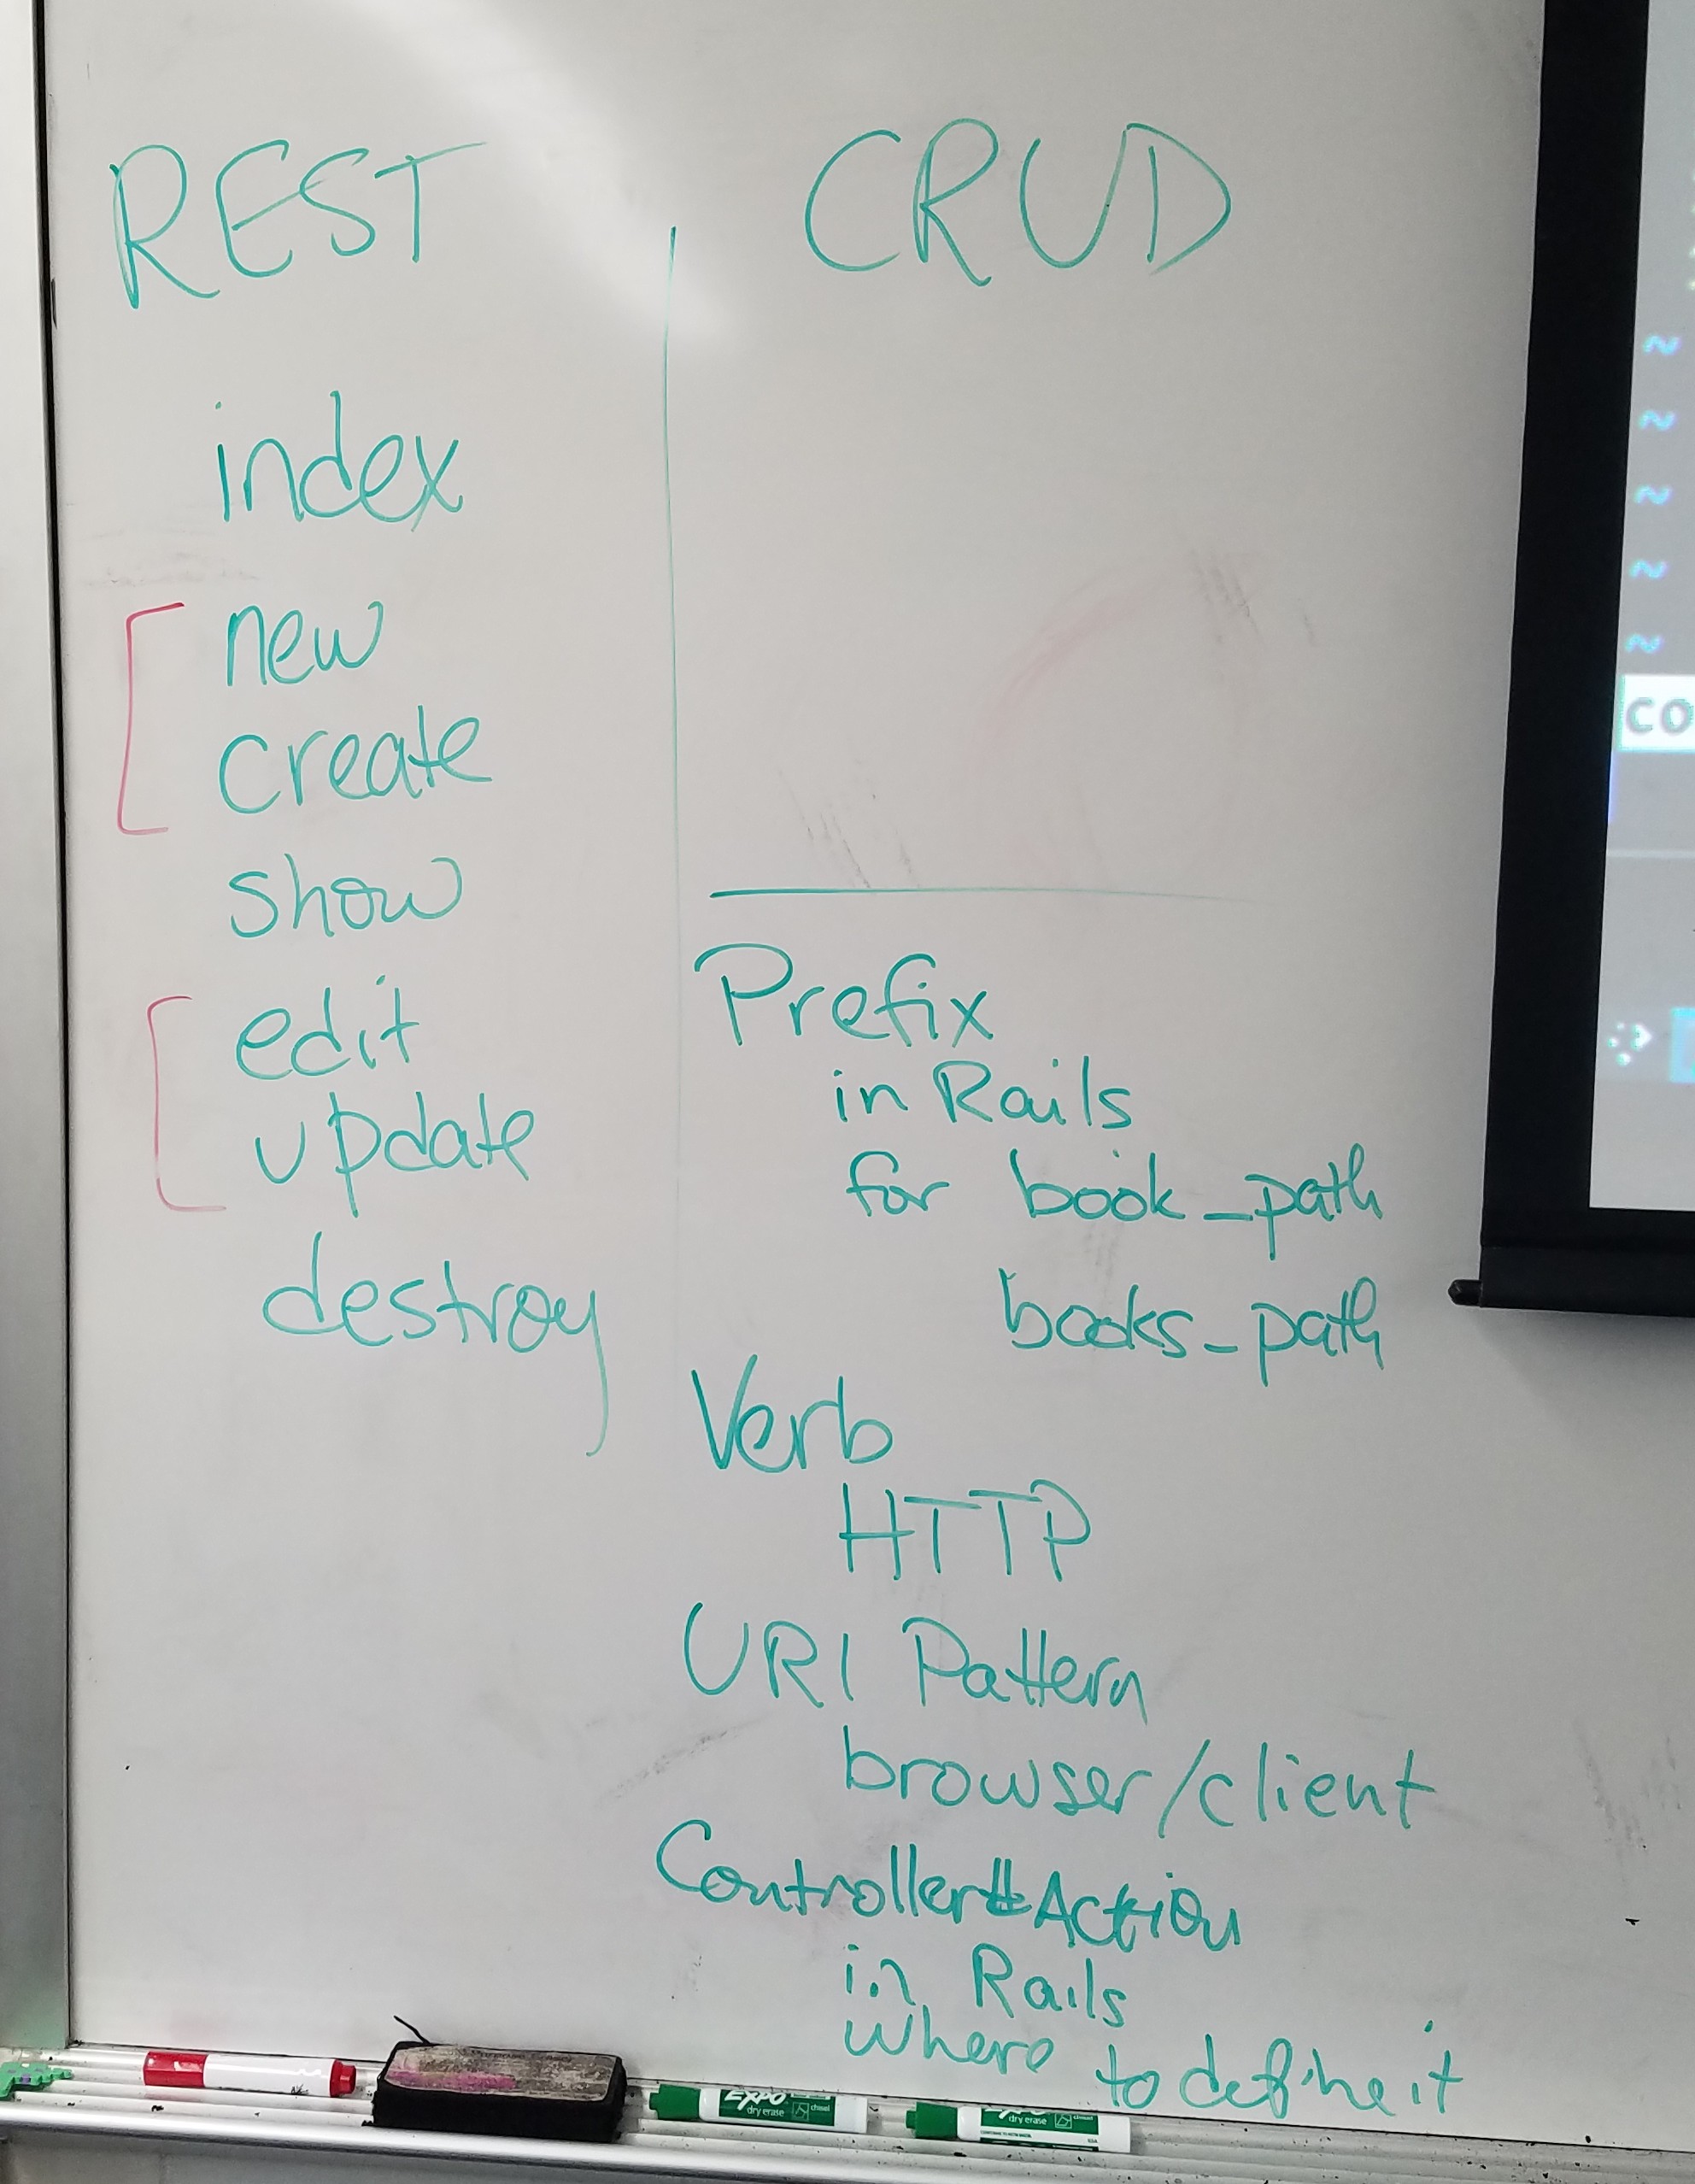 REST
index
new
create
show
edit
update
destroy
CRUD
Prefix
in Rails
for book_path
books_path
Verb
HTTP
URI Pattern
browser/client
Controller#Action
in Rails
where to define it
~
~
~
~
~
co
EXPO
dry erase
chisel
dry erase
chisel